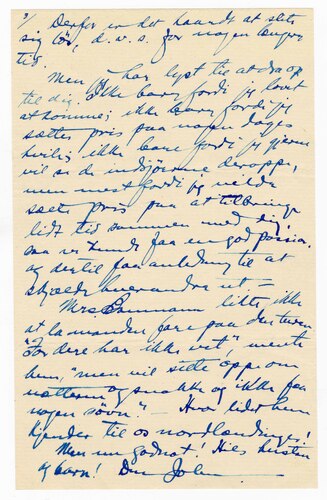 3/ Derfor er det haardt at slite
sig løs, d.v.s. for nogen længre
tid.
Men jeg har lyst til at dra op
til dig. Ikke bare fordi jeg lovet
at komme; ikke bare fordi jeg
sætter pris paa nogen dages
hvile; ikke bare fordi jeg gjerne
vil se de indsjøerne deroppe,
men mest fordi jeg vilde
sætte pris paa at tilbringe
lidt tid sammen med dig,
saa vi kunde faa en god passiar
og dertil faa anledning til at
skjælde hverandre ut =
Mrs. likte ikke
at la manden fare paa den turen
"For dere har ikke vet", mente
hun, "men vil sitte oppe om
nætterne og snakke og ikke faa
nogen søvn". — Hvor lidet hun
kjender til os nordlændinger!
Men nu godnat! Hils hustru
og barn! Din John